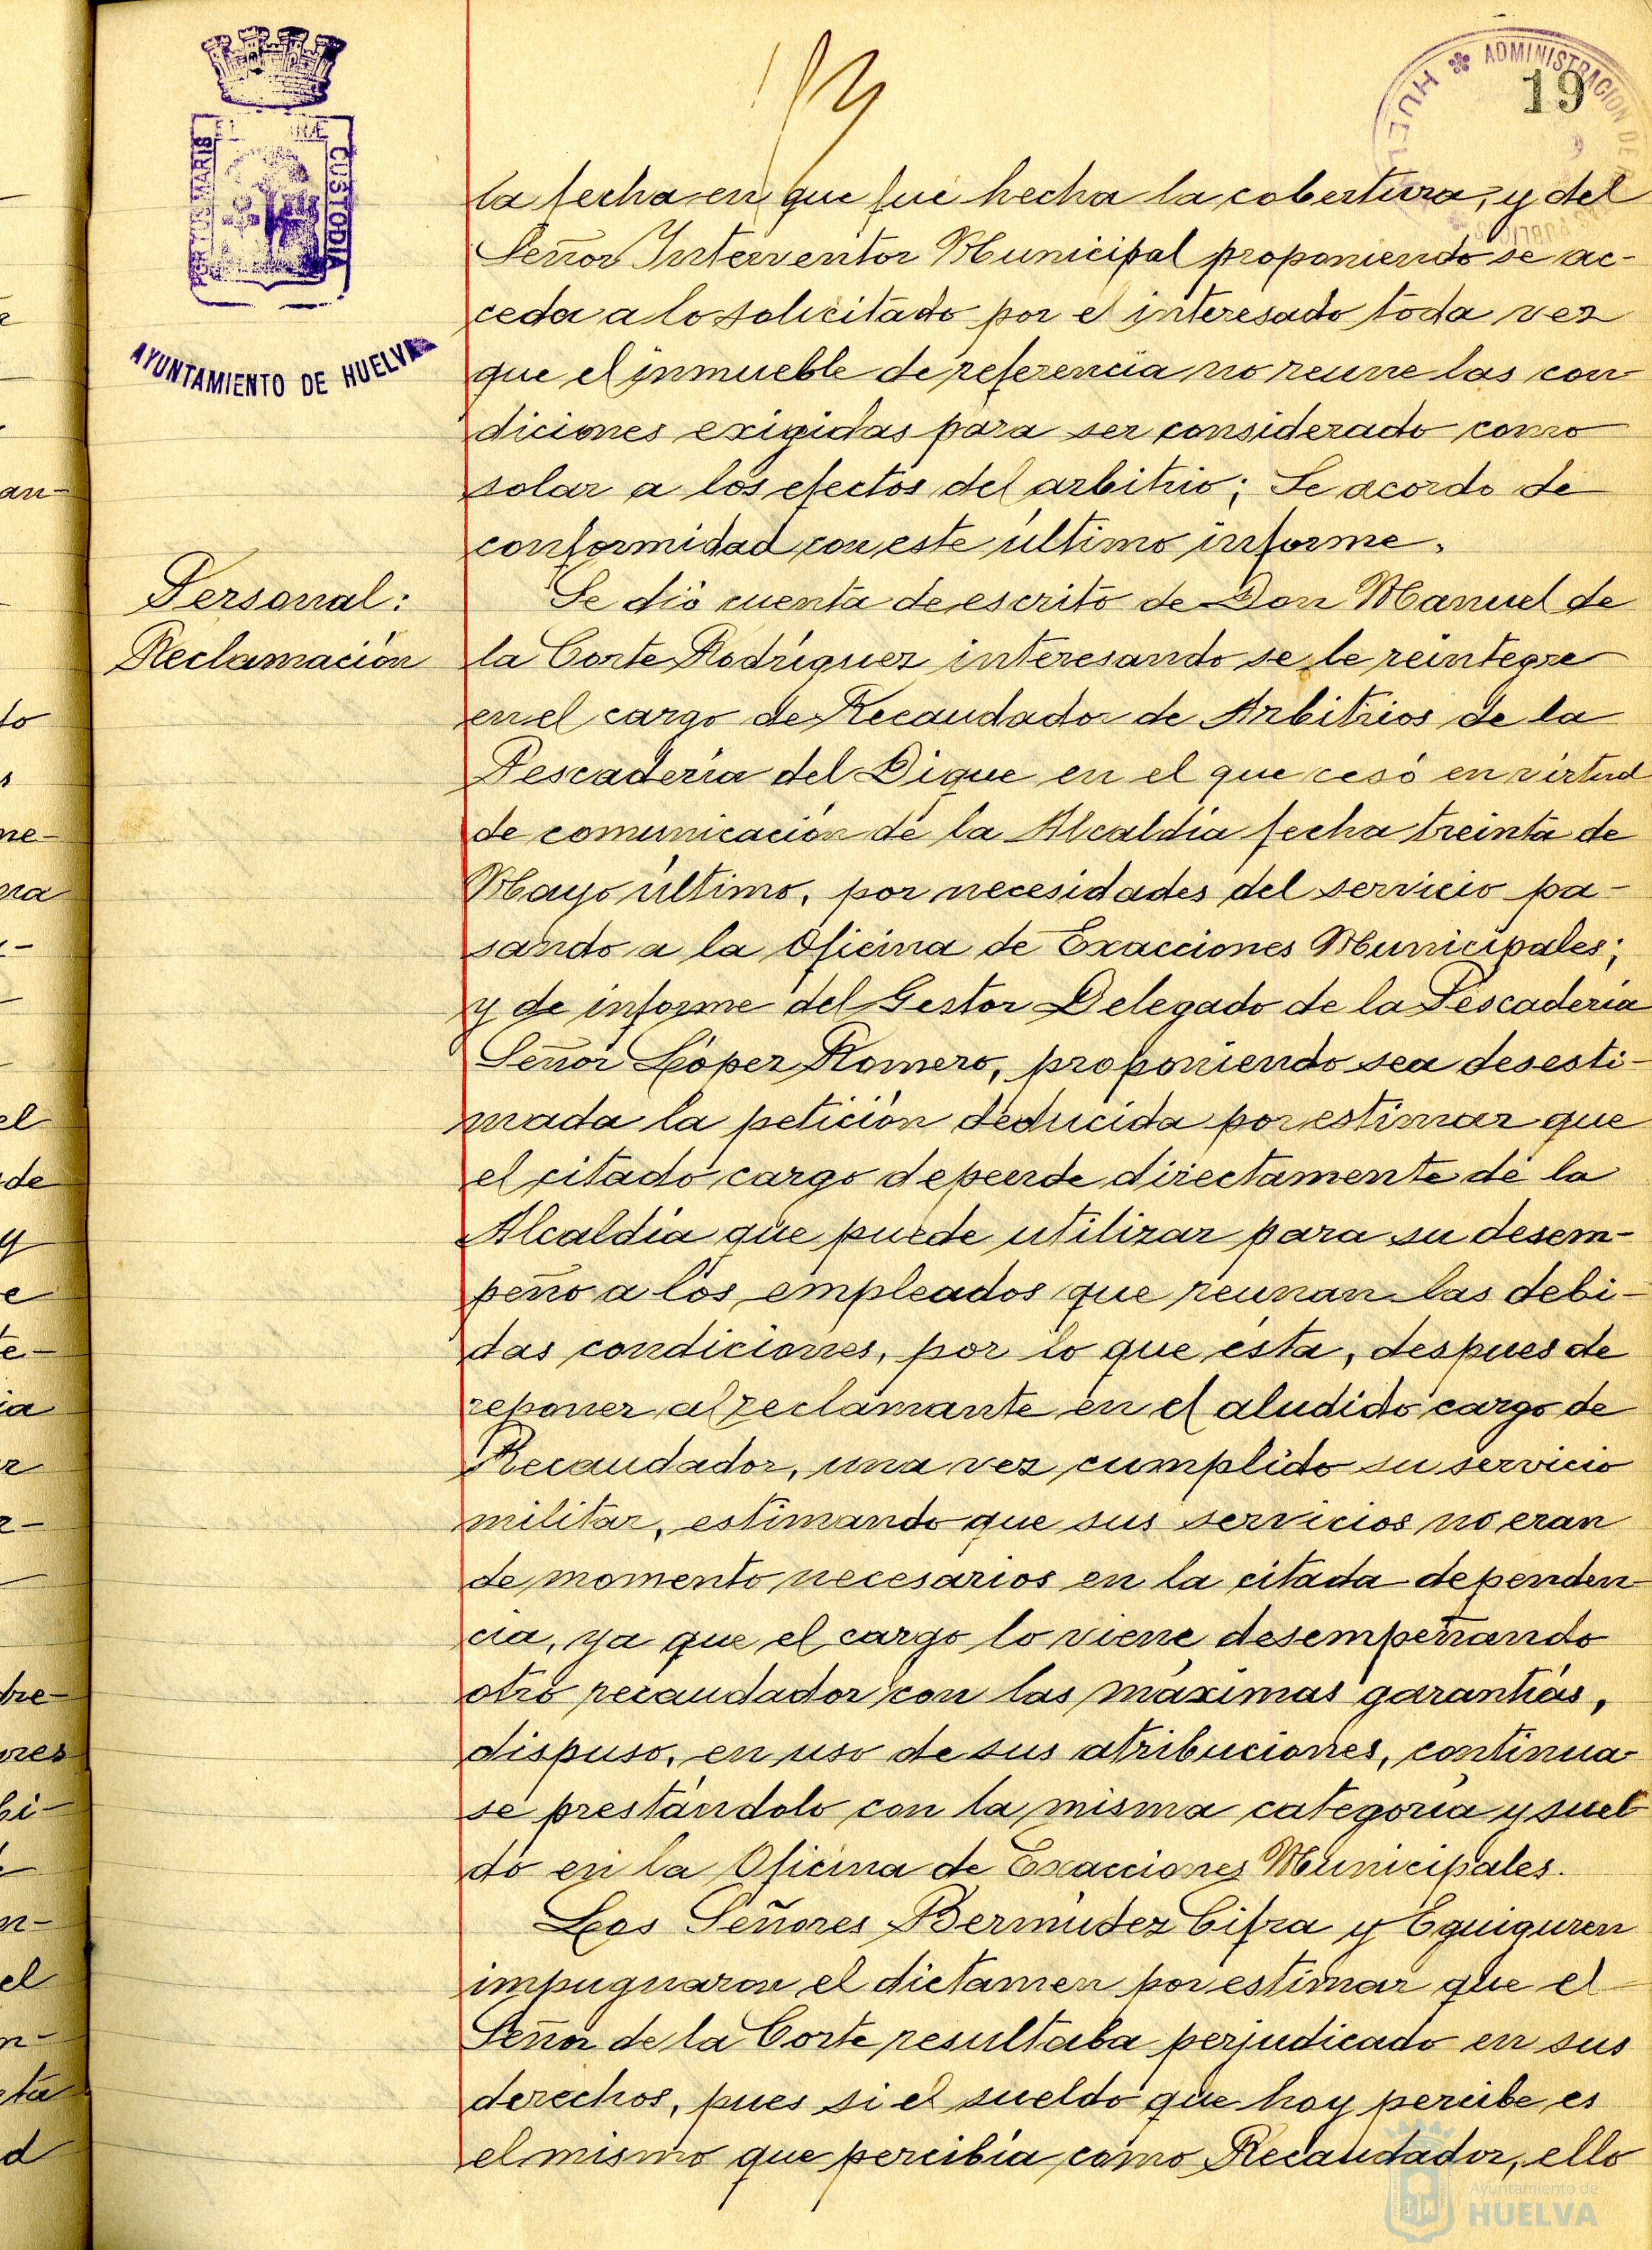 19
ADMINISTRACION DE
HUEL
PORTUS MARIS
CUSTODIA
AYUNTAMIENTO DE HUELVA
la fecha en que fué hecha la cobertura, y del
Señor Interventor Municipal proponiendo se ac-
ceda a lo solicitado por el interesado toda vez
que el inmueble de referencia no reune las con
diciones exigidas para ser considerado como
solar a los efectos del arbitrio; Se acordó de
conformidad con este último informe.
Personal:
Reclamación
Se dió cuenta de escrito de Don Manuel de
la Corte Rodríguez interesando se le reintegre
en el cargo de Recaudador de Arbitrios de la
Pescadería del Dique en el que cesó en virtud
de comunicación de la Alcaldía fecha treinta de
Mayo último, por necesidades del servicio pa-
sando a la Oficina de Exacciones Municipales;
y de informe del Gestor Delegado de la Pescadería
Señor López Romero, proponiendo sea desesti-
mada la petición deducida por estimar que
el citado cargo depende directamente de la
Alcaldía que puede utilizar para su desem-
peño a los empleados que reunan las debi-
das condiciones, por lo que ésta, despues de
reponer al reclamante en el aludido cargo de
Recaudador, una vez cumplido su servicio
militar, estimando que sus servicios no eran
de momento necesarios en la citada dependen
cia, ya que el cargo lo viene desempeñando
otro recaudador con las máximas garantías,
dispuso, en uso de sus atribuciones, continua-
se prestándolo con la misma categoría y suel
do en la Oficina de Exacciones Municipales.
Los Señores Bermúdez Cifra y Eguiguren
impugnaron el dictamen por estimar que el
Señor de la Corte resultaba perjudicado en sus
derechos, pues si el sueldo que hoy percibe es
el mismo que percibía como Recaudador, ello
Ayuntamiento de
HUELVA